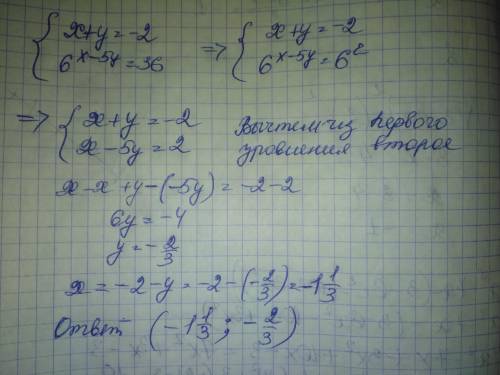 { x+y=-2 => { x+y=-2
6^{x-5y}=36 6^{x-5y}=6^2
=> { x+y=-2 Вычтем из первого
x-5y=2 уравнения второе
x-x+y-(-5y)=-2-2
6y=-4
y=-2/3
x=-2-y=-2-(-2/3)=-1 1/3
Ответ (-1 1/3; -2/3)